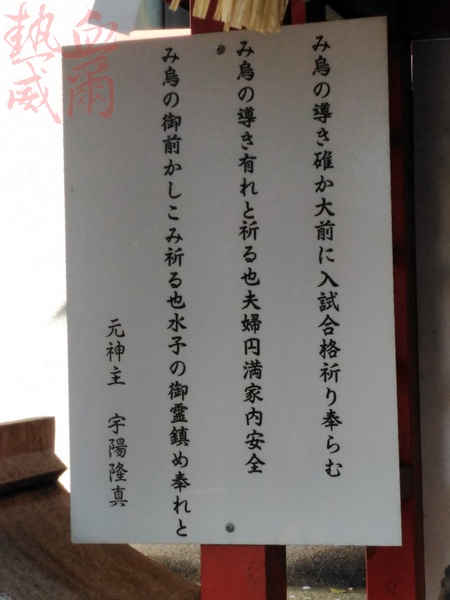 み烏の導き確か大前に入試合格祈り奉らむ
み烏の導き有れと祈る也夫婦円満家内安全
み烏の御前かしこみ祈る也水子の御霊鎮め奉れと
元神主 宇陽隆真
熱血
威爾